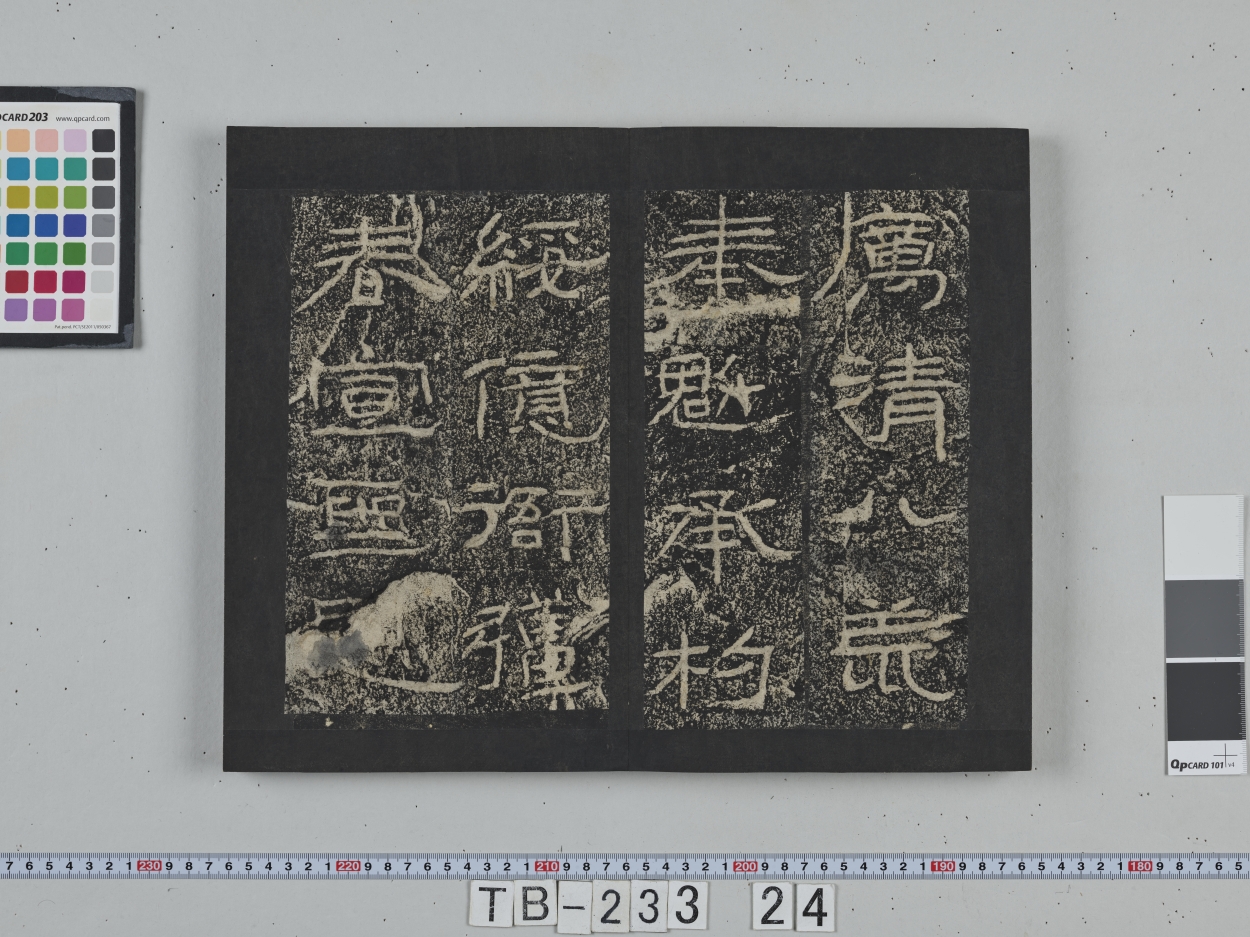 厲清八荒
奉魁承杓
綏億衙彊
春宣聖
PCARD203 www.qpcard.com
QPCARD 101 v4
7 6 5 4 3 2 1 230 9 8 7 6 5 4 3 2 1 220 9 8 7 6 5 4 3 2 1 210 9 8 7 6 5 4 3 2 1 200 9 8 7 6 5 4 3 2 1 190 9 8 7 6 5 4 3 2 1 180 9 8 7 6 5
TB-233 24